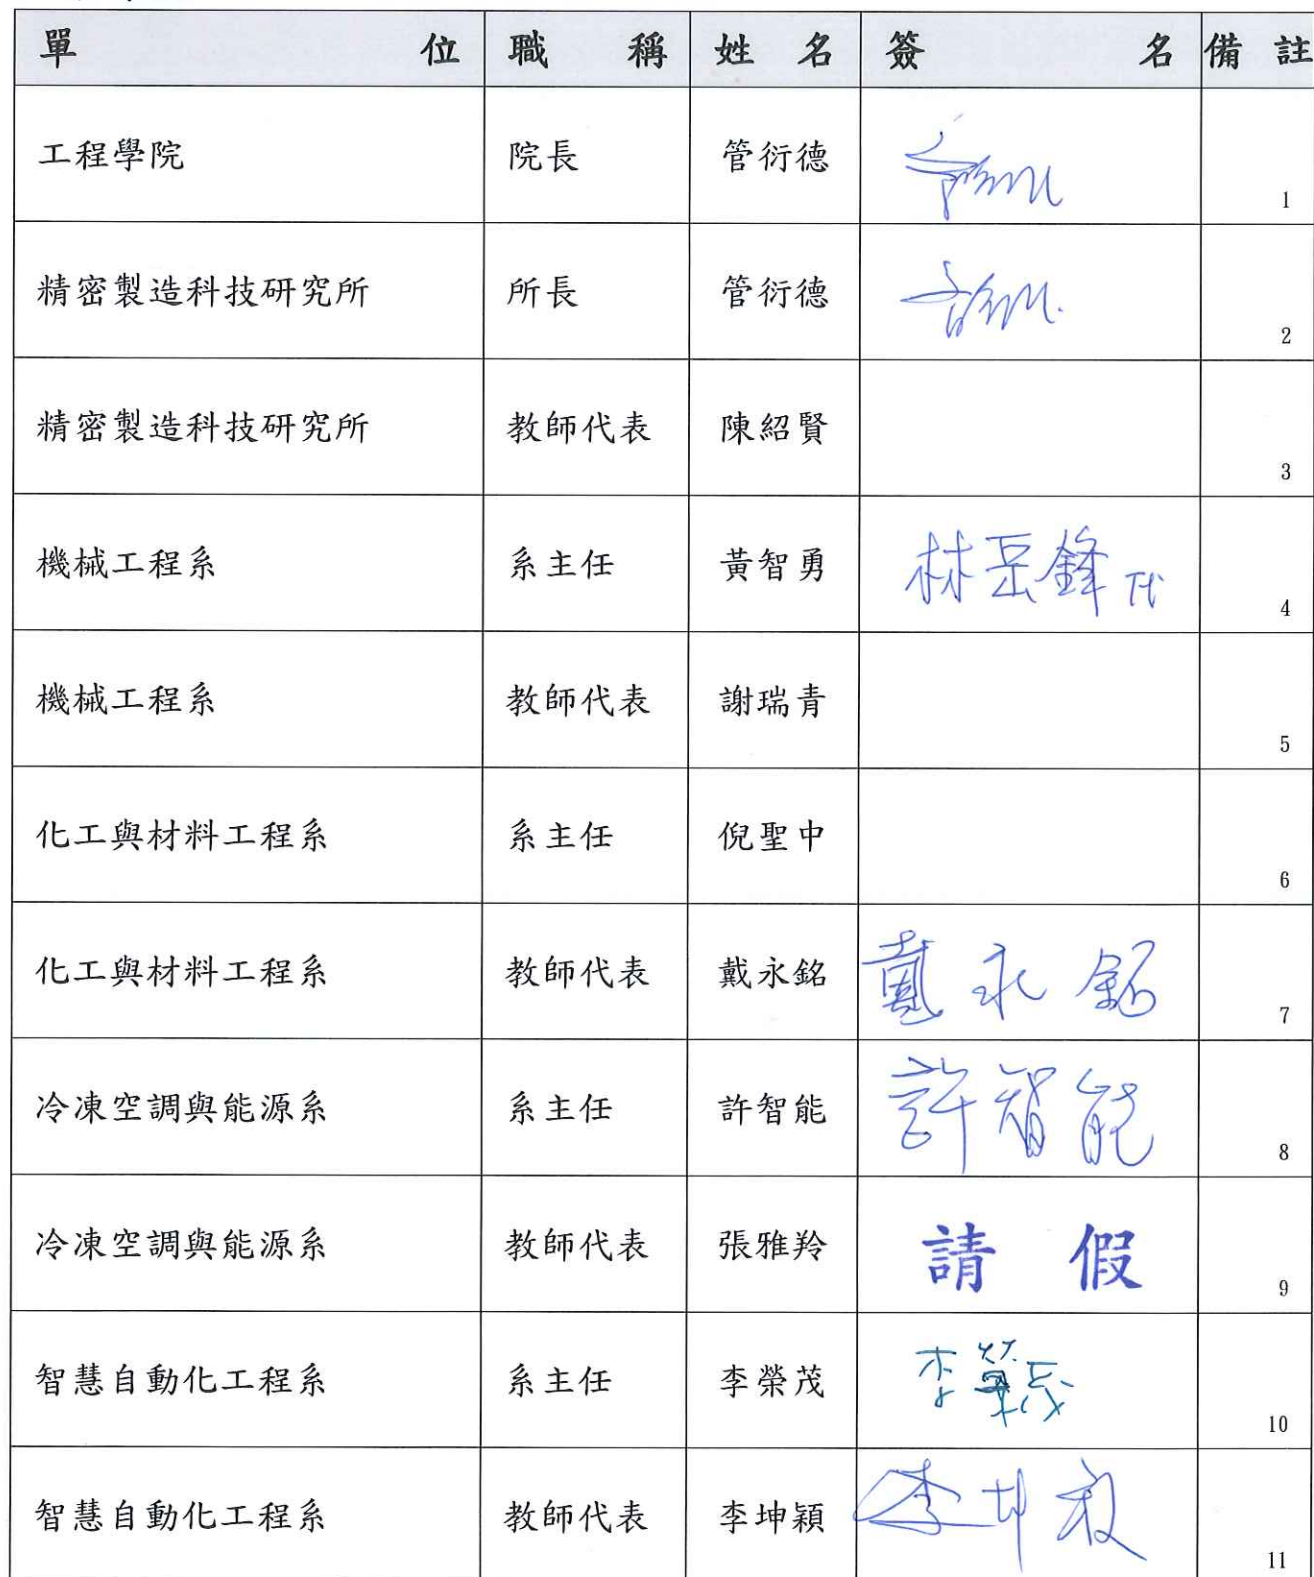 單位 職稱 姓名 簽名 備註
工程學院 院長 管衍德 1
精密製造科技研究所 所長 管衍德 2
精密製造科技研究所 教師代表 陳紹賢 3
機械工程系 系主任 黃智勇 林岳鋒 代 4
機械工程系 教師代表 謝瑞青 5
化工與材料工程系 系主任 倪聖中 6
化工與材料工程系 教師代表 戴永銘 戴永銘 7
冷凍空調與能源系 系主任 許智能 許智能 8
冷凍空調與能源系 教師代表 張雅羚 請假 9
智慧自動化工程系 系主任 李榮茂 李榮茂 10
智慧自動化工程系 教師代表 李坤穎 李坤穎 11